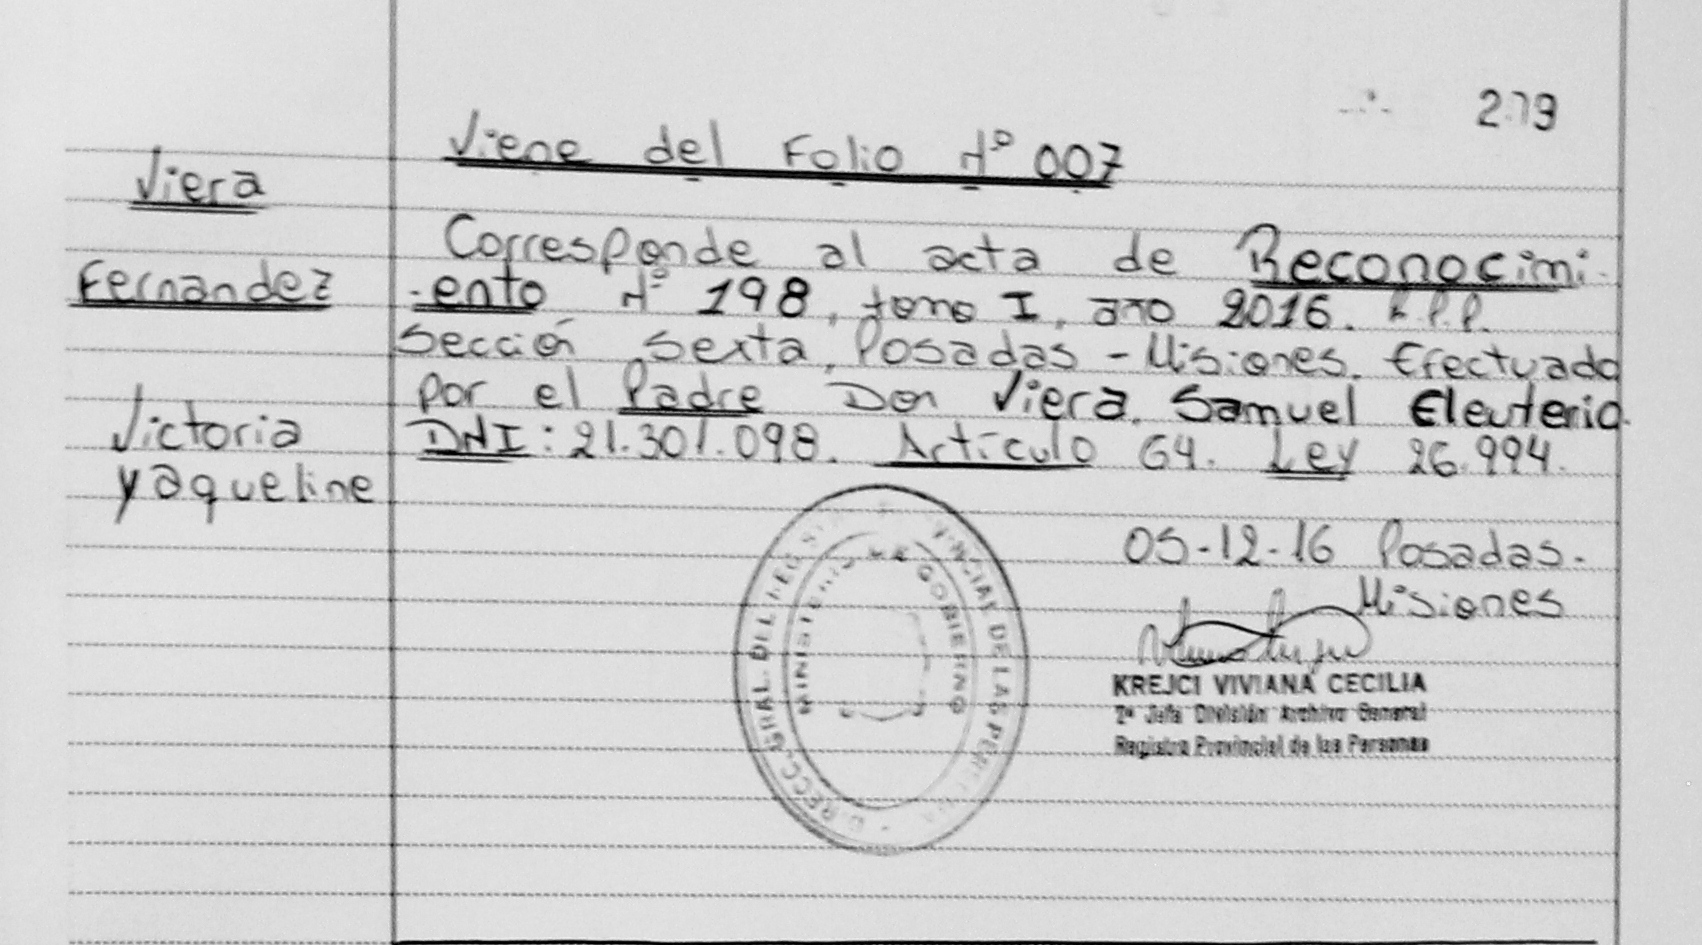 279
Viene del Folio Nº 007
Viera
Fernandez
Victoria
yaqueline
Corresponde al acta de Reconocimi-
-ento Nº 198, tomo I, año 2016. R.P.P.
Sección Sexta, Posadas - Misiones. Efectuado
por el Padre Don Viera, Samuel Eleuterio.
DNI: 21.301.098. Artículo 64. Ley 26.994.
05-12-16 Posadas.
Misiones
KREJCI VIVIANA CECILIA
2ª Jefa División Archivo General
Registro Provincial de las Personas
DIRECC. GRAL. DEL REGISTRO PROVINCIAL DE LAS PERSONAS
MINISTERIO DE GOBIERNO